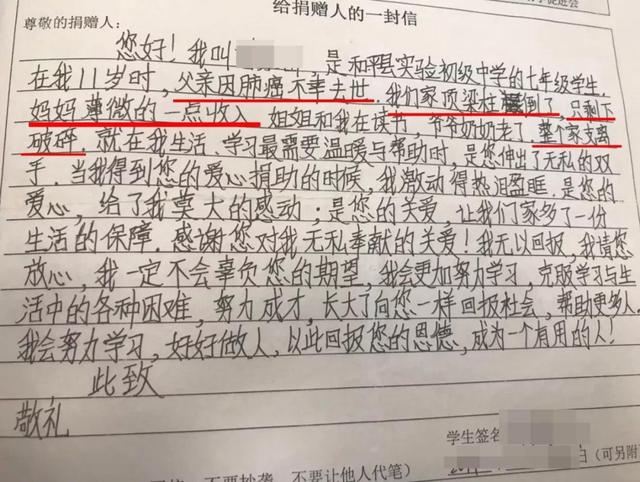 给捐赠人的一封信
尊敬的捐赠人：
您好！我叫 是和平县实验初级中学的七年级学生.
在我11岁时，父亲因肺癌不幸去世，我们家顶梁柱倒了，只剩下
妈妈尊微的一点收入 姐姐和我在读书，爷爷奶奶老了，整个家支离
破碎. 就在我生活、学习最需要温暖与帮助时，是您伸出了无私的双
手，当我得到您的爱心捐助的时候，我激动得热泪盈眶，是您的
爱心，给了我莫大的感动；是您的关爱，让我们家多了一份
生活的保障，感谢您对我无私奉献的关爱！我无以回报，我请您
放心，我一定不会辜负您的期望，我会更加努力学习，克服学习与生
活中的各种困难，努力成才，长大了向您一样回报社会，帮助更多人
我会努力学习，好好做人，以此回报您的恩德，成为一个有用的人！
此致
敬礼
学生签名
日（可另附
不要抄袭，不要让他人代笔）